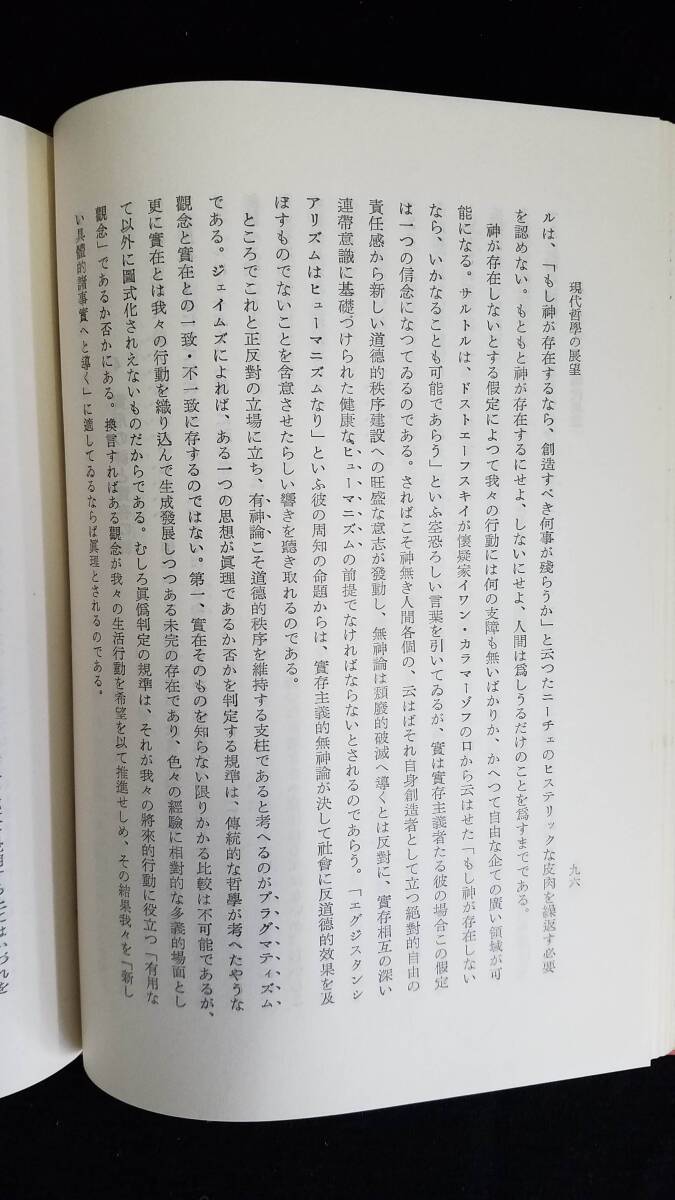 現代哲學の展望
九六
ルは、「もし神が存在するなら、創造すべき何事が殘らうか」と云つたニーチェのヒステリックな皮肉を繰返す必要
を認めない。もともと神が存在するにせよ、しないにせよ、人間は爲しうるだけのことを爲すまでである。
神が存在しないとする假定によつて我々の行動には何の支障も無いばかりか、かへつて自由な企ての廣い領域が可
能になる。サルトルは、ドストエーフスキイが懷疑家イワン・カラマーゾフの口から云はせた「もし神が存在しない
なら、いかなることも可能であらう」といふ空恐ろしい言葉を引いてゐるが、實は實存主義者たる彼の場合この假定
は一つの信念になつてゐるのである。さればこそ神無き人間各個の、云はばそれ自身創造者として立つ絕對的自由の
責任感から新しい道德的秩序建設への旺盛な意志が發動し、無神論は頽廢的破滅へ導くとは反對に、實存相互の深い
連帶意識に基礎づけられた健康なヒューマニズムの前提でなければならないとされるのであらう。「エグジスタンシ
アリズムはヒューマニズムなり」といふ彼の周知の命題からは、實存主義的無神論が決して社會に反道德的效果を及
ぼすものでないことを含意させたらしい響きを聽き取れるのである。
ところでこれと正反對の立場に立ち、有神論こそ道德的秩序を維持する支柱であると考へるのがプラグマティズム
である。ジェイムズによれば、ある一つの思想が眞理であるか否かを判定する規準は、傳統的な哲學が考へたやうな
觀念と實在との一致・不一致に存するのではない。第一、實在そのものを知らない限りかかる比較は不可能であるが、
更に實在とは我々の行動を織り込んで生成發展しつつある未完の存在であり、色々の經驗に相對的な多義的場面とし
て以外に圖式化されえないものだからである。むしろ眞僞判定の規準は、それが我々の將來的行動に役立つ「有用な
觀念」であるか否かにある。換言すればある觀念が我々の生活行動を希望を以て推進せしめ、その結果我々を「新し
い具體的諸事實へと導く」に適してゐるならば眞理とされるのである。